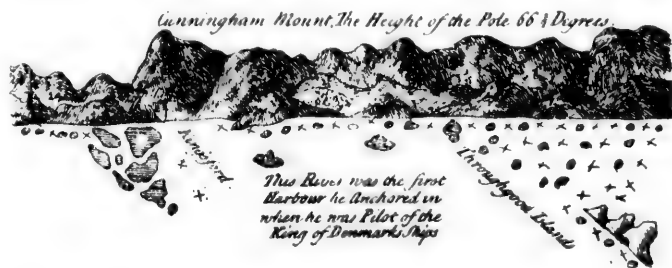 Cunningham Mount, The Height of the Pole 66¼ Degrees.
Kinesford
This River was the first
Harbour he Anchored in
when he was Pilot of the
King of Denmarks Ships
Throughgood Islands